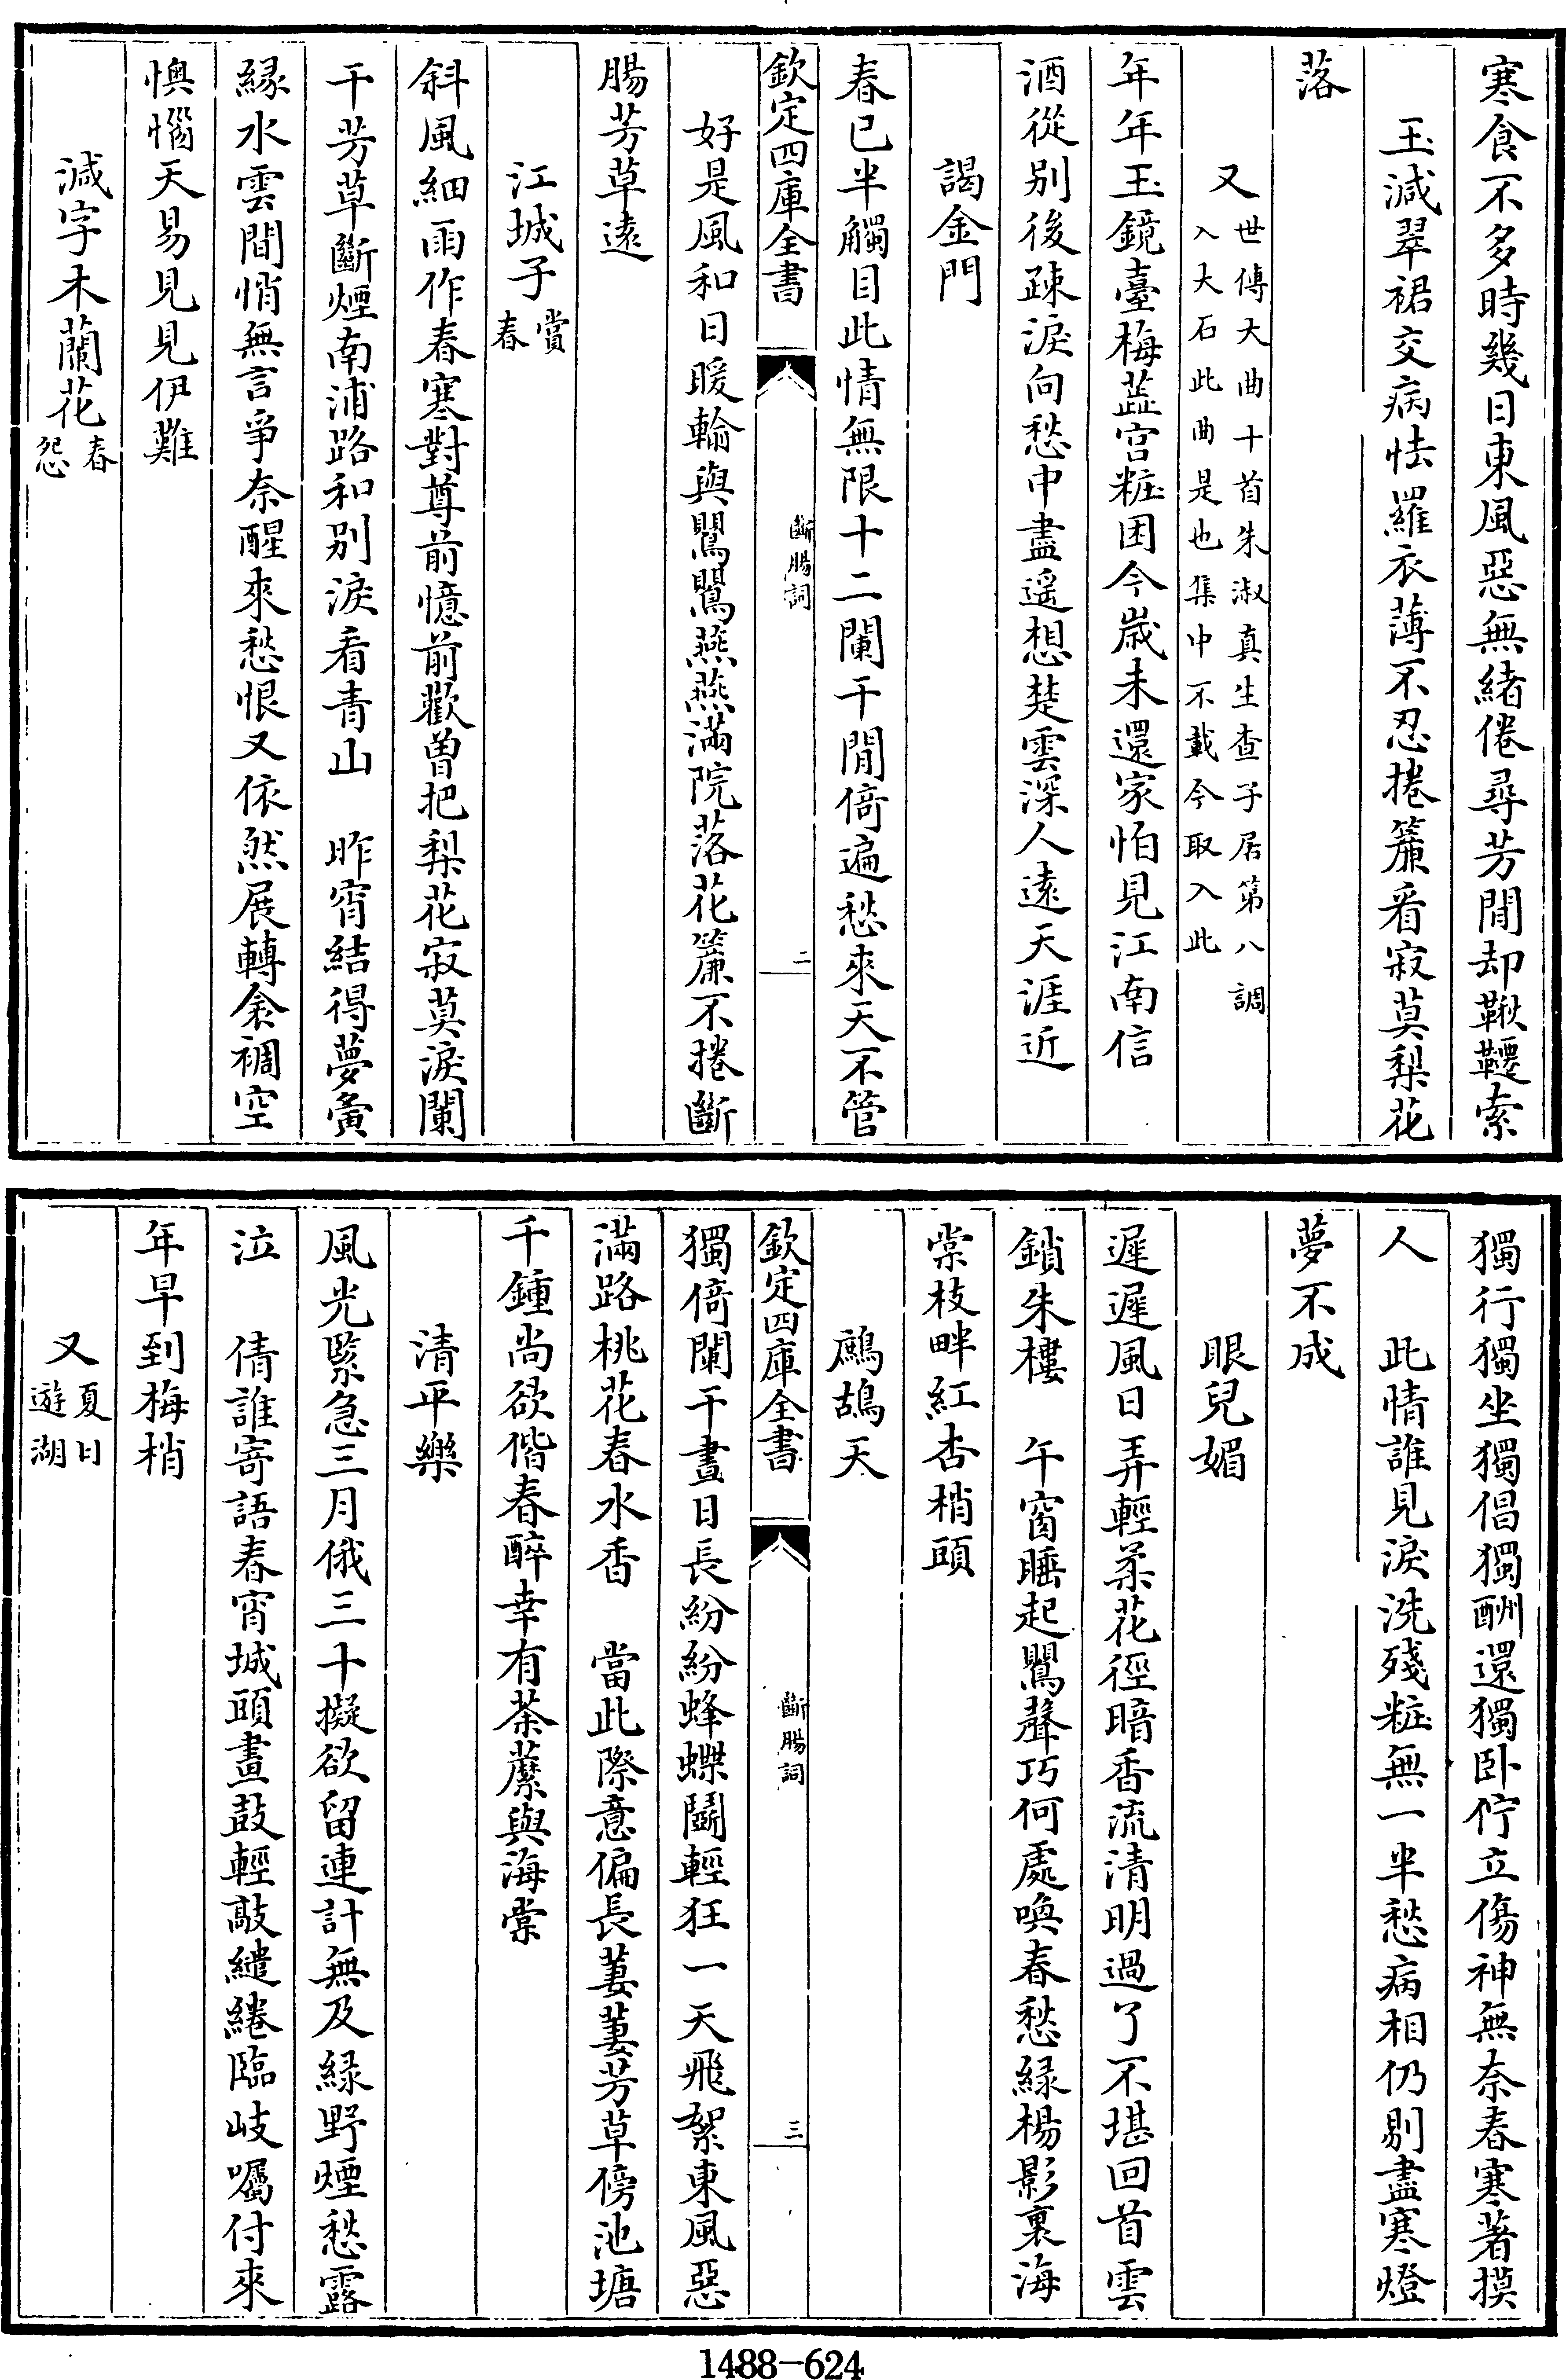 寒食不多時幾日東風惡無緒倦尋芳閒却鞦韆索
玉減翠裙交病怯羅衣薄不忍捲簾看寂莫梨花
落
又世傳大曲十首朱淑真生查子居第八調
入大石此曲是也集中不載今取入此
年年玉鏡臺梅蘂宫粧困今嵗未還家怕見江南信
酒從别後疎淚向愁中盡遥想楚雲深人逺天涯近
謁金門
春已半觸目此情無限十二闌干閒倚遍愁來天不管
欽定四庫全書
斷腸詞
二
好是風和日暖輸與鸎鸎燕燕滿院落花簾不捲斷
腸芳草逺
江城子賞
春
斜風細雨作春寒對尊前憶前歡曽把梨花寂莫淚闌
干芳草斷煙南浦路和别淚看青山　昨宵結得夢夤
縁水雲間悄無言爭奈醒來愁恨又依然展轉衾裯空
懊惱天易見見伊難
減字木蘭花春
怨
獨行獨坐獨倡獨酬還獨卧佇立傷神無奈春寒著摸
人　此情誰見淚洗殘粧無一半愁病相仍剔盡寒燈
夢不成
眼兒媚
遲遲風日弄輕柔花徑暗香流清明過了不堪回首雲
鎖朱樓　午窗睡起鸎聲巧何處喚春愁緑楊影裏海
棠枝畔紅杏梢頭
鷓鴣天
欽定四庫全書
斷腸詞
三
獨倚闌干晝日長紛紛蜂蝶鬬輕狂一天飛絮東風惡
滿路桃花春水香　當此際意偏長萋萋芳草傍池塘
千鍾尚欲偕春醉幸有荼蘼與海棠
清平樂
風光緊急三月俄三十擬欲留連計無及緑野煙愁露
泣　倩誰寄語春宵城頭畫鼓輕敲繾綣臨岐囑付來
年早到梅梢
又夏日
遊湖
1488-624